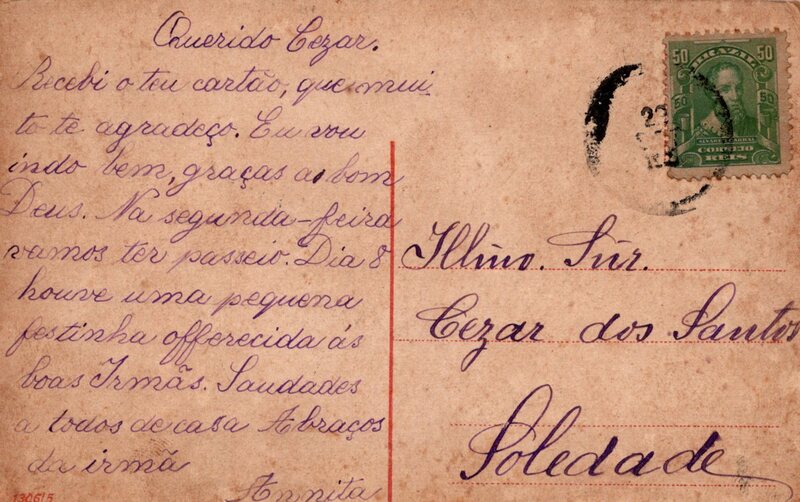 Querido Cezar.
Recebi o teu cartão, que mui-
to te agradeço. Eu vou
indo bem, graças ao bom
Deus. Na segunda-feira
vamos ter passeio. Dia 8
houve uma pequena
festinha offerecida ás
boas Irmãs. Saudades
a todos de casa Abraços
da irmã
Annita
130615
50 BRAZIL 50
50 50
CORREIO
REIS
Illmo. Snr.
Cezar dos Santos
Soledade